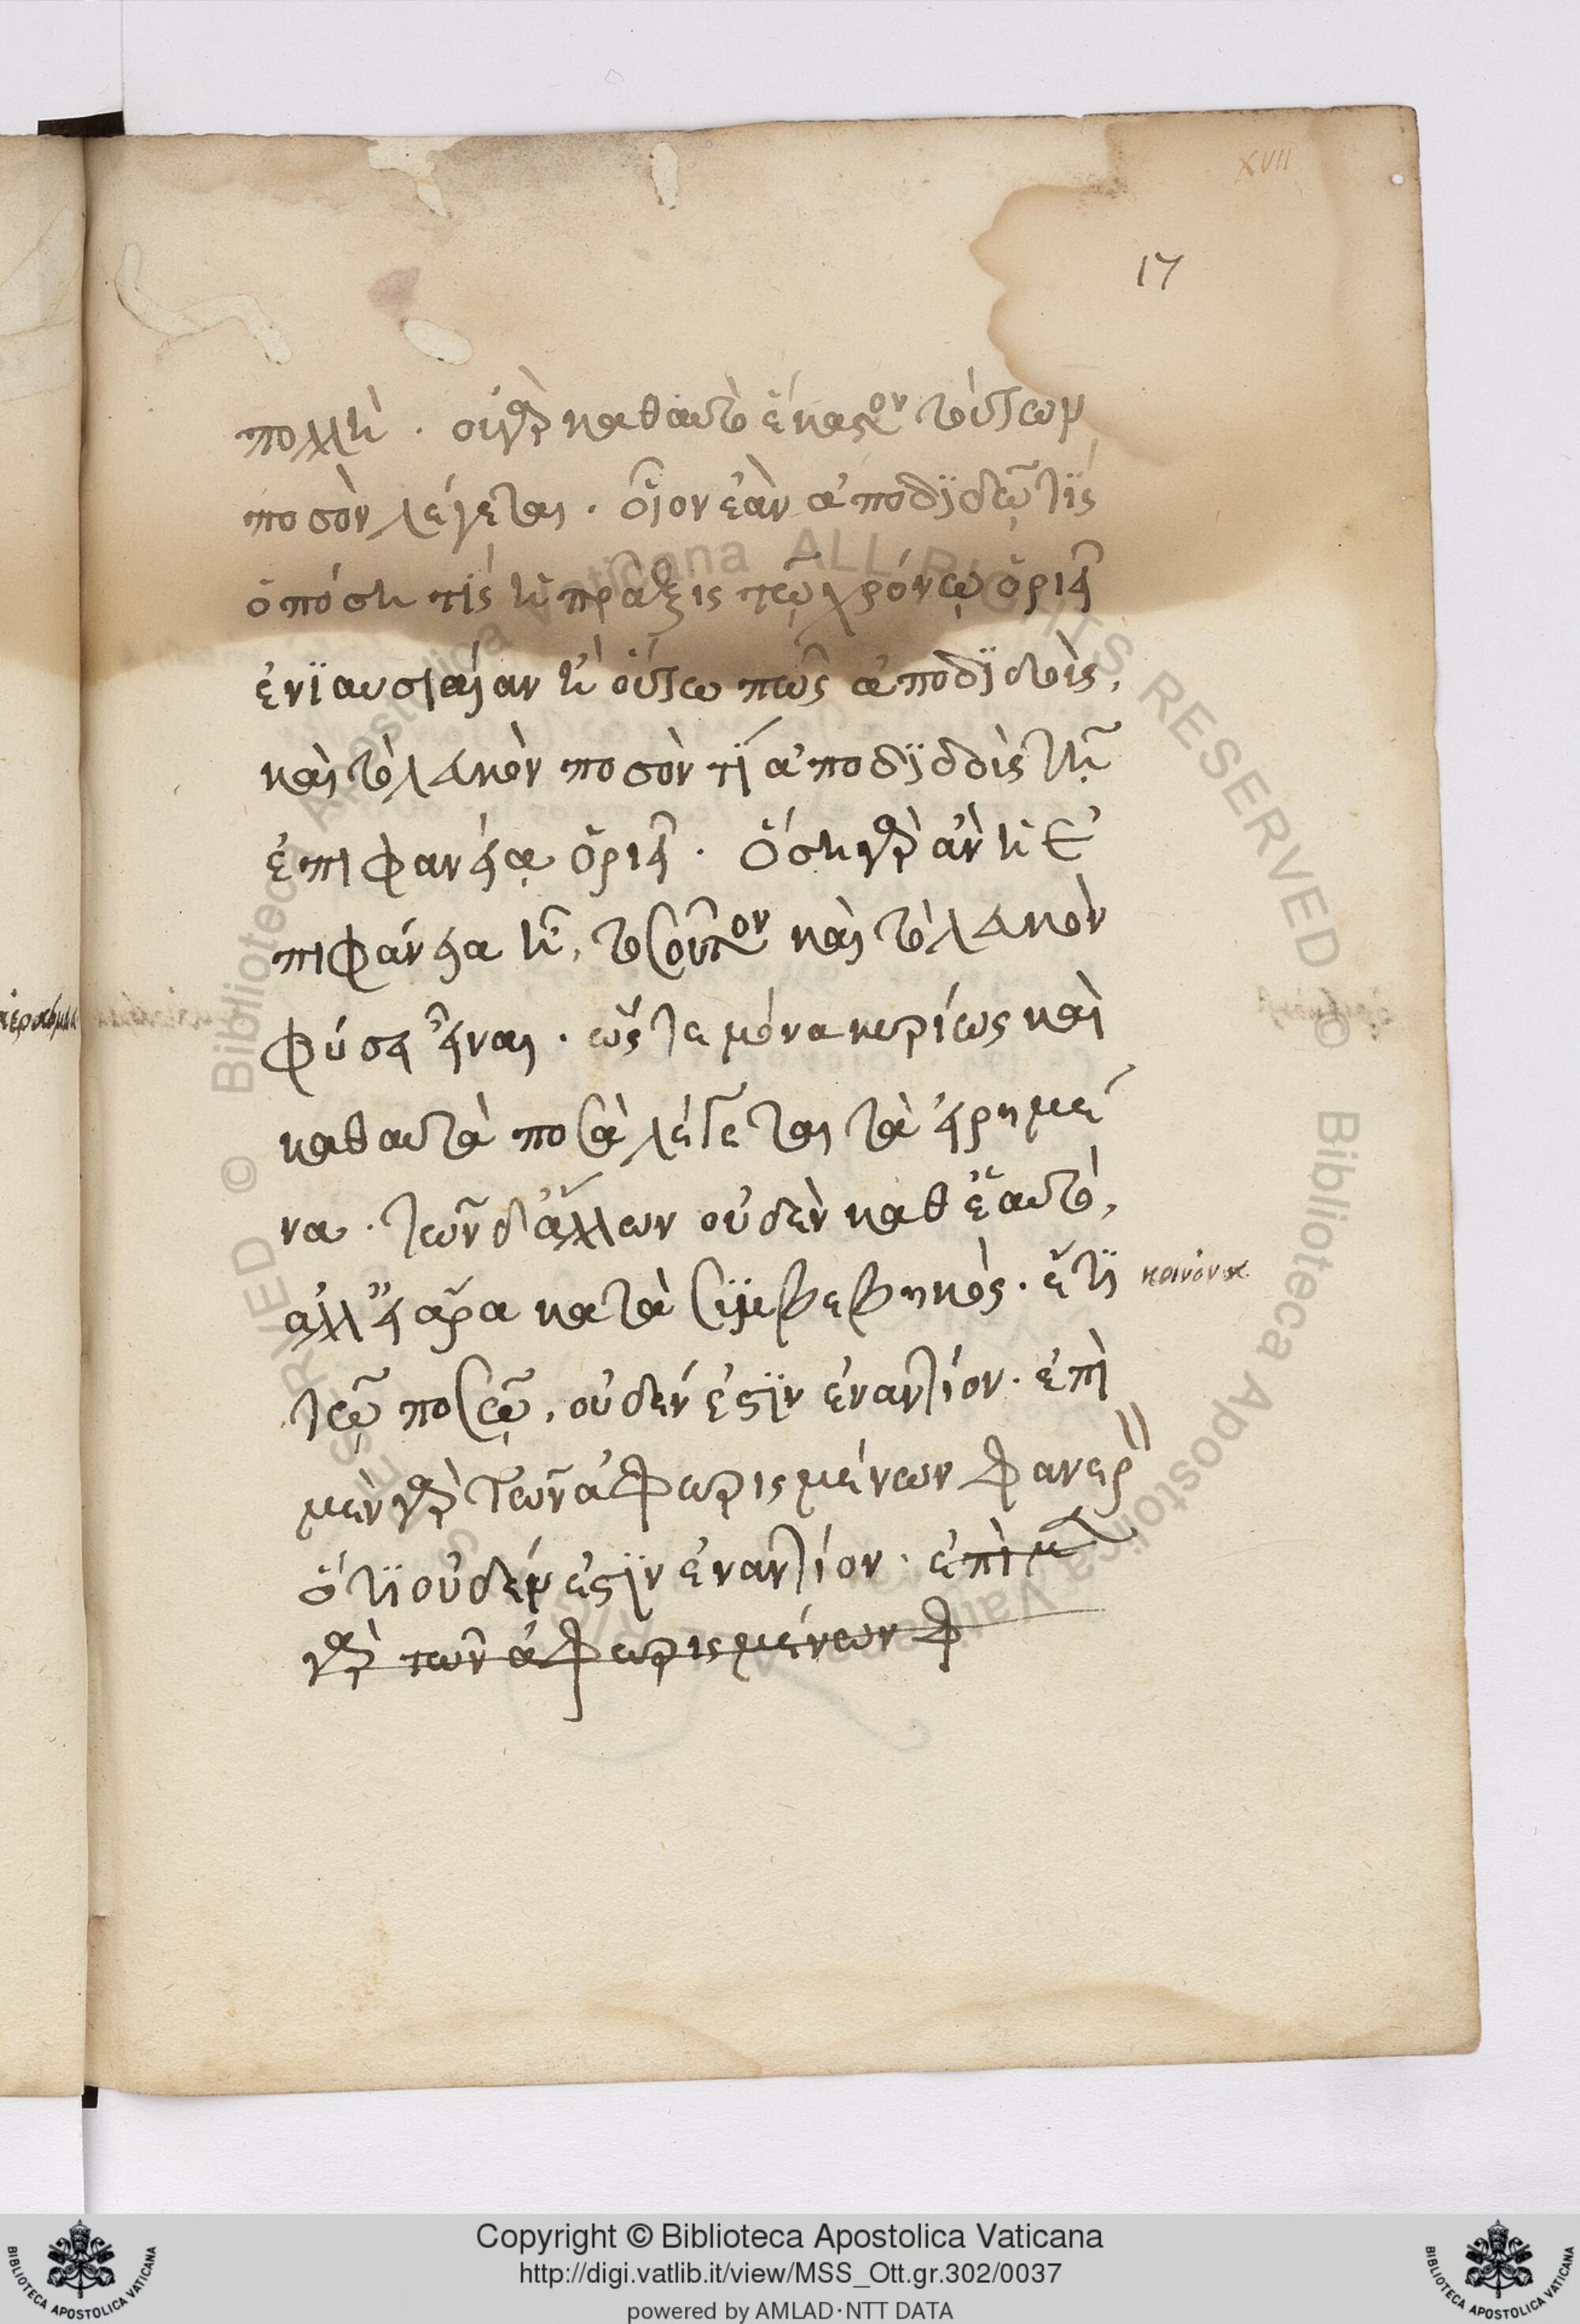 XVII
17
πολλὴ · οὐ γὰρ καθ αυτὸ ἕκαστον τούτων
ποσὸν λέγεται · οἷον ἐὰν ἀποδϊδῷ τὶς
ὁπόση τὶς ἡ πρᾶξις τῷ χρόνῳ ὁριεῖ
ἐνϊαυσιαίαν ἢ οὕτω πῶς ἀποδϊδοὺς,
καὶ τὸ λευκὸν ποσὸν τὶ ἀποδϊδοὺς τῇ
ἐπιφανείᾳ ὁριεῖ · ὅση γὰρ ἂν ἡ ἐ
πιφάνεια ᾖ, τοσοῦτον καὶ τὸ λευκὸν
φύσει εἶναι · ὥστε μόνα κυρίως καὶ
καθ αυτὰ ποσὰ λέγεται τὰ εἰρημέ
να · τῶν δ ἄλλων οὐδὲν καθ ἑαυτὸ,
ἀλλ εἰ ἄρα κατὰ συμβεβηκὸς · ἔτϊ
τῷ ποσῷ, οὐδέν ἐστϊν ἐναντίον · ἐπὶ
μὲν γὰρ τῶν ἀφωρισμένων φανερὸν
ὅτϊ οὐδέν ἐστϊν ἐναντίον · ἐπὶ μὲν
γὰρ τῶν ἀφωρισμένων φ
Copyright © Biblioteca Apostolica Vaticana
http://digi.vatlib.it/view/MSS_Ott.gr.302/0037
powered by AMLAD·NTT DATA
BIBLIOTECA APOSTOLICA VATICANA
BIBLIOTECA APOSTOLICA VATICANA
© Biblioteca Apostolica Vaticana ALL RIGHTS RESERVED © Biblioteca Apostolica Vaticana ALL RIGHTS RESERVED